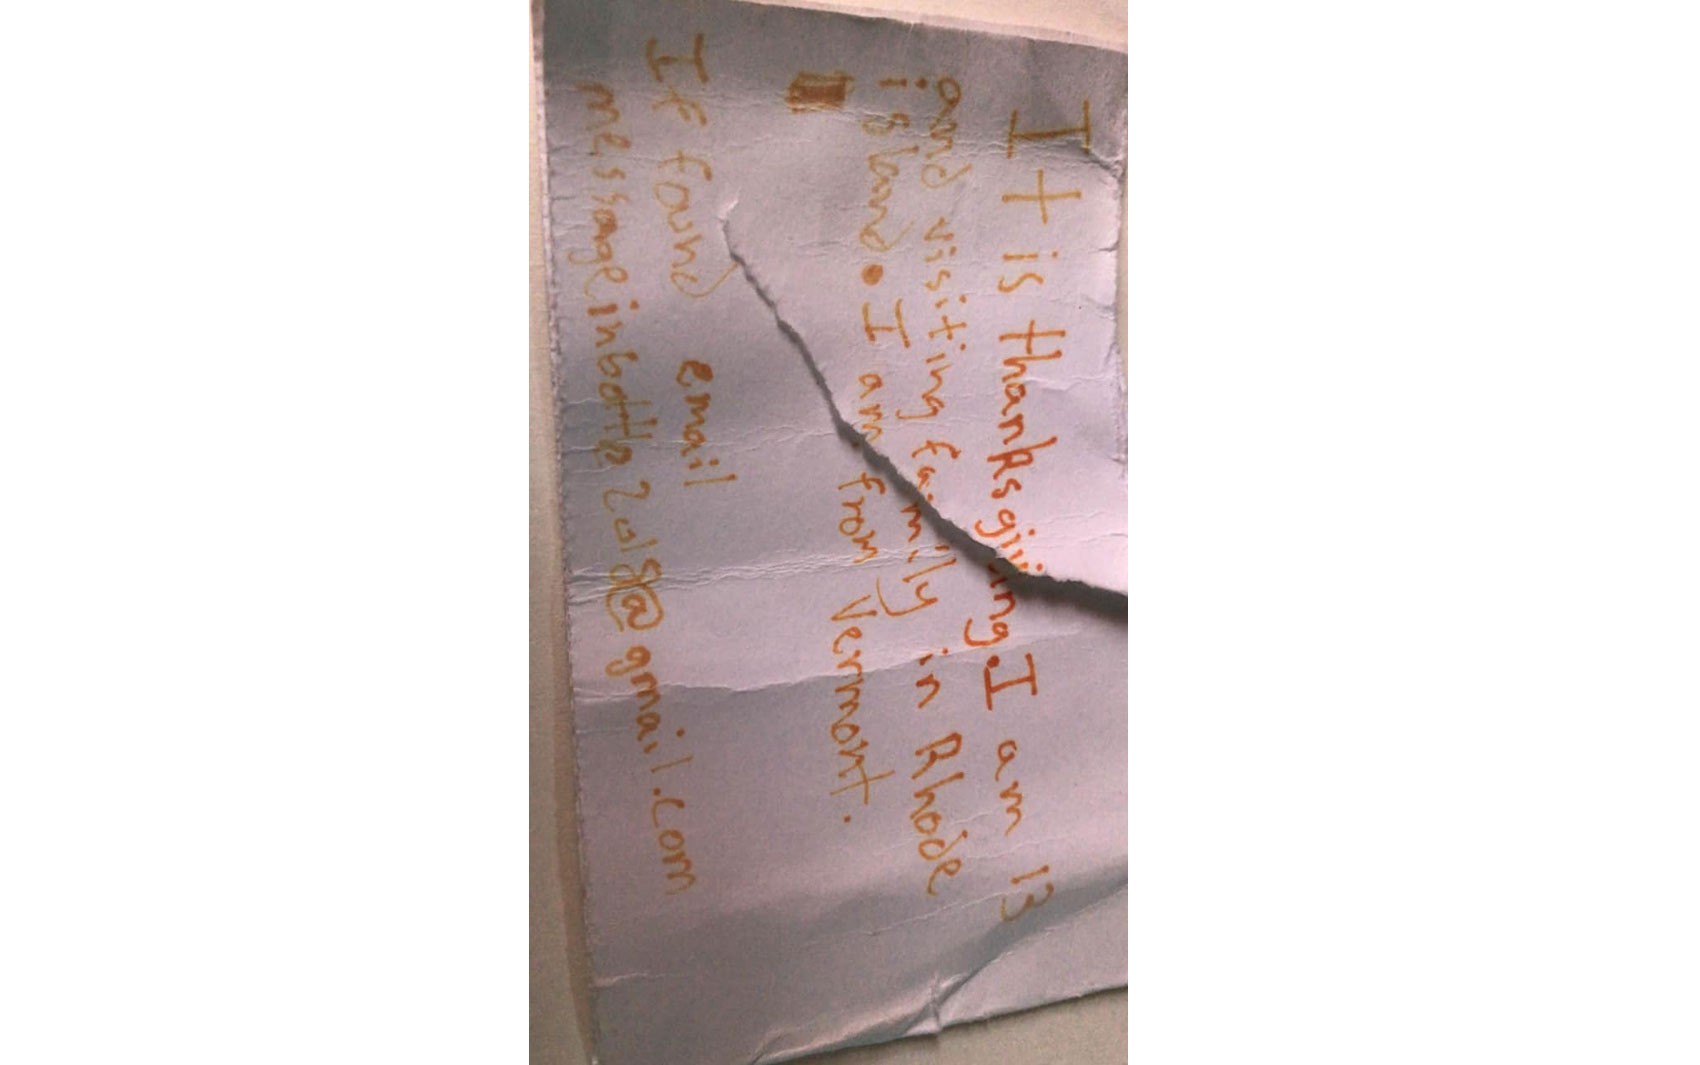 It is thanksgiving. I am 13
and visiting family in Rhode
island. I am from Vermont.
If found email
messageinbottle2018@gmail.com